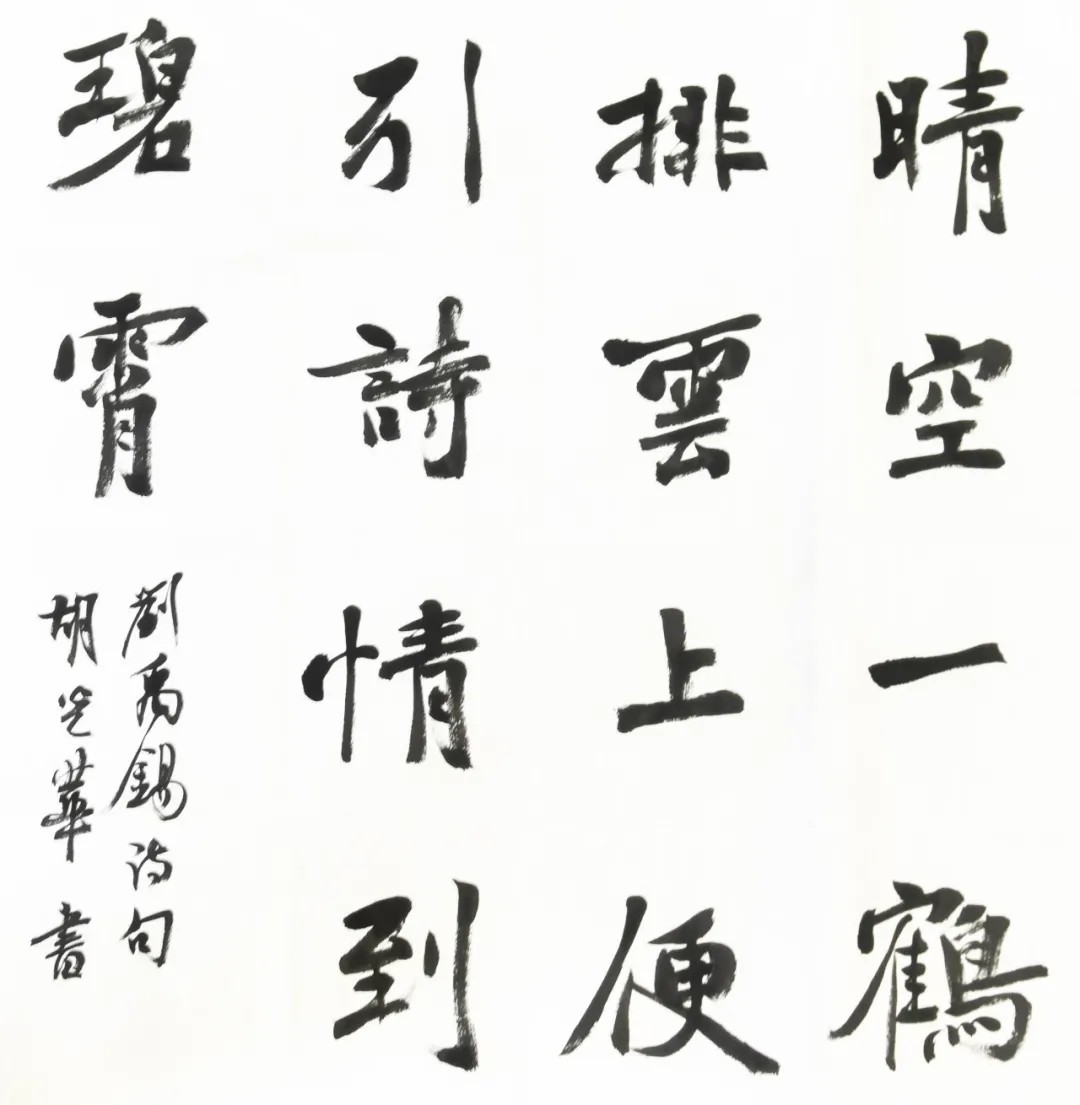 晴空一鶴
排雲上便
引詩情到
碧霄
劉禹錫詩句
胡光華書